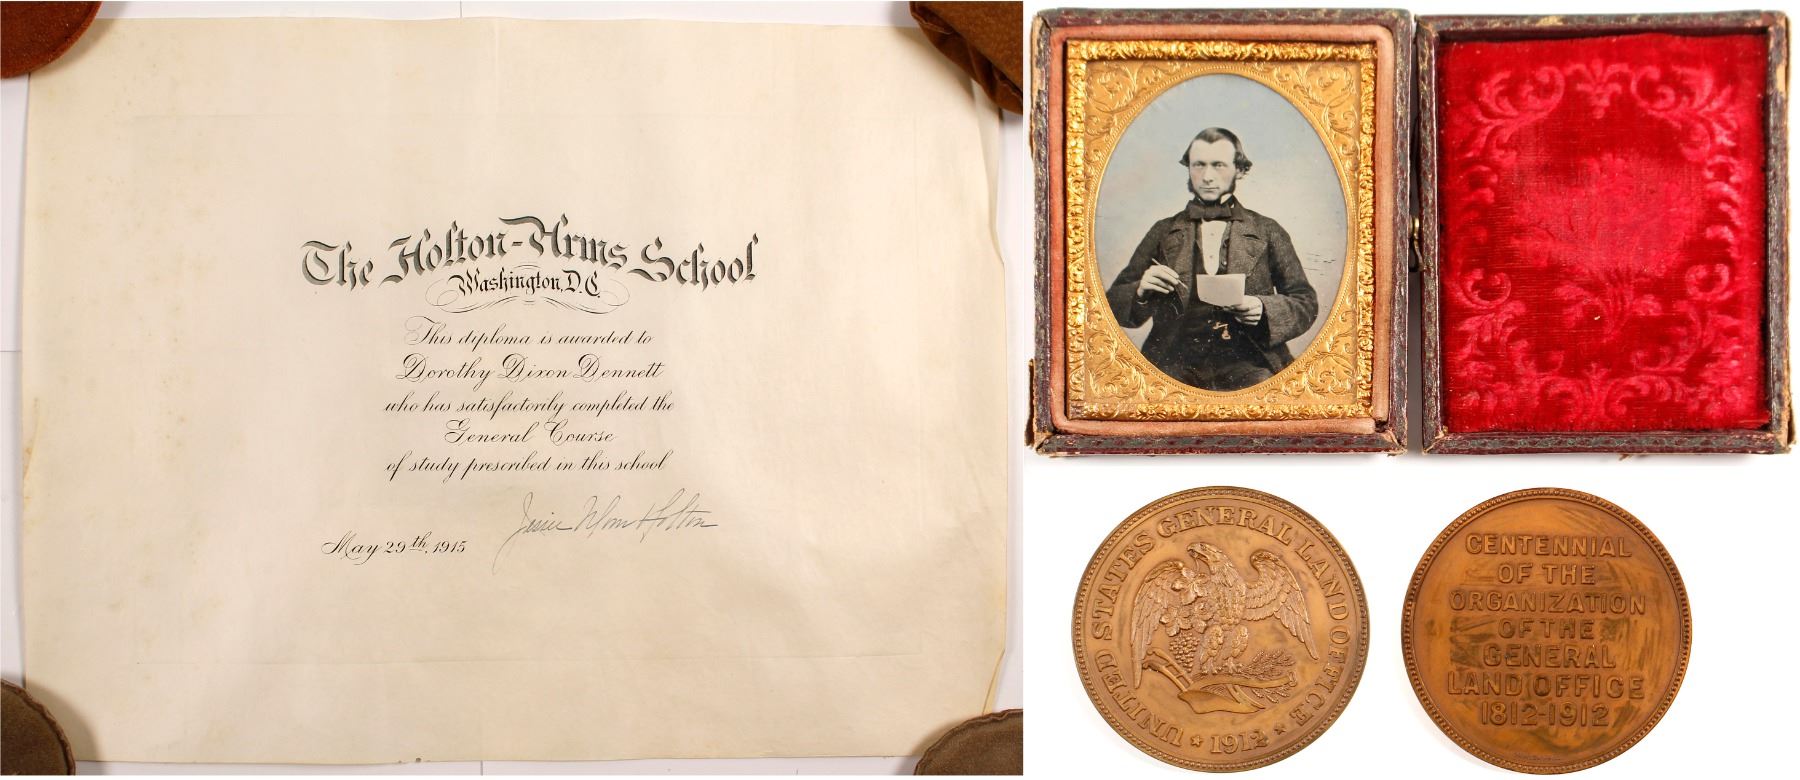 The Holton-Arms School
Washington, D.C.
This diploma is awarded to
Dorothy Dixon Dennett
who has satisfactorily completed the
General Course
of study prescribed in this school
Jessie Moon Holton
May 29th, 1915
UNITED STATES GENERAL LAND OFFICE
★ 1912 ★
CENTENNIAL
OF THE
ORGANIZATION
OF THE
GENERAL
LAND OFFICE
1812-1912